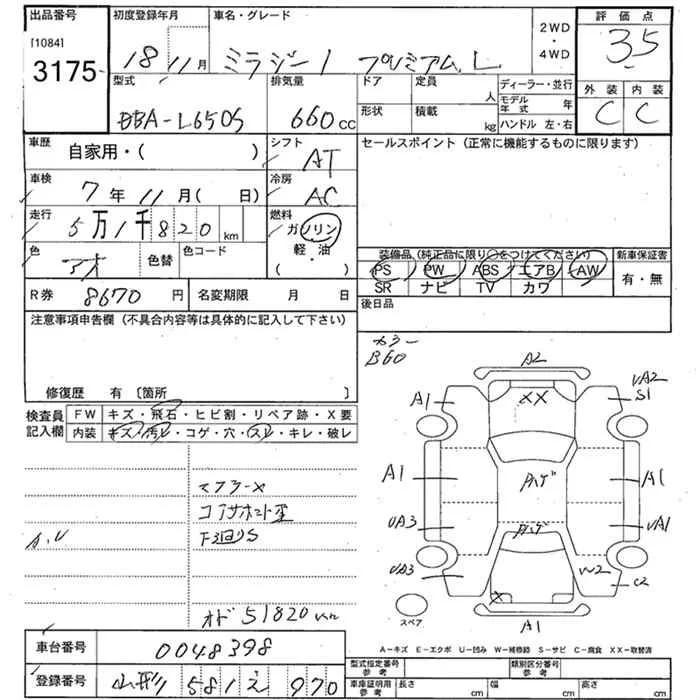 出品番号 初度登録年月 車名・グレード 2WD・4WD 評価点
[1084]
3175 18 11月 ミラジーノ プレミアムL 35
型式 排気量 ドア 定員 人 ディーラー・並行 外装 内装
DBA-L650S 660cc 形状 積載 kg モデル年式 年 C C
ハンドル 左・右
車歴 自家用・( ) シフト AT セールスポイント (正常に機能するものに限ります)
車検 7年11月(  日) 冷房 AC
走行 5万1千820km 燃料 ガソリン・軽・油 ( )
色 色替 色コード
装備品 (純正品に限り○をつけてください) 新車保証書
PS PW ABS エアB AW 有・無
SR ナビ TV カワ
R券 8670円 名変期限 月 日 後日品
注意事項申告欄 (不具合内容等は具体的に記入して下さい)
カラー
B60
修復歴 有〔箇所
検査員記入欄 FW キズ・飛石・ヒビ割・リペア跡・X要
内装 キズ・汚レ・コゲ・穴・スレ・キレ・破レ
マフラーX
コアサポート歪
F廻りS
A.U
オド 51820km
A2
A1 XX UA2
S1
A1 ハゲ A1
UA3 ハゲ UA1
UA3 W2 C2
X
スペア A1
A-キズ E-エクボ U-凹み W-補修跡 S-サビ C-腐食 XX-取替済
車台番号 0048398
型式指定番号 参考 類別区分番号 参考
登録番号 山形 581 え 970
車庫証明用 参考 長さ cm 幅 cm 高さ cm